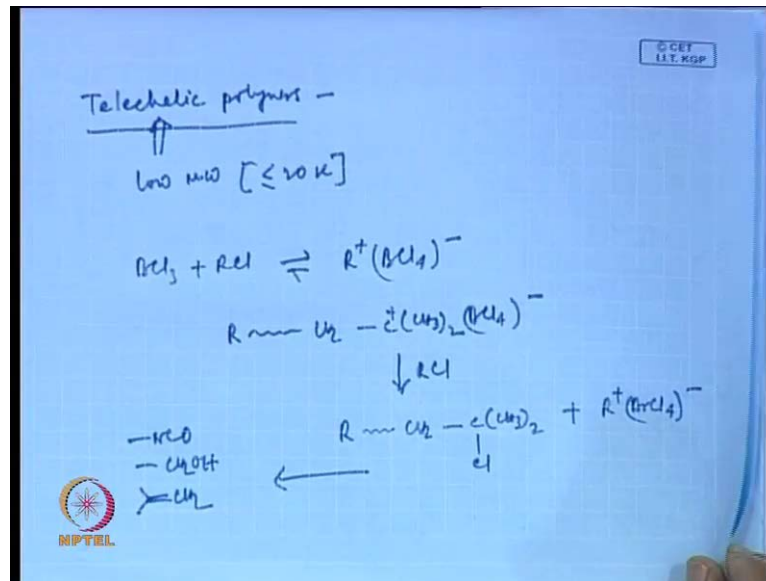 © CET
I.I.T. KGP
Telechelic polymers -
Low MW [≤ 20 K]
BCl₃ + RCl ⇌ R⁺(BCl₄)⁻
R ~~~ CH₂ — C⁺(CH₃)₂(BCl₄)⁻
↓ RCl
R ~~~ CH₂ — C(CH₃)₂ + R⁺(BCl₄)⁻
Cl
—NCO
—CH₂OH ←
>=CH₂
NPTEL